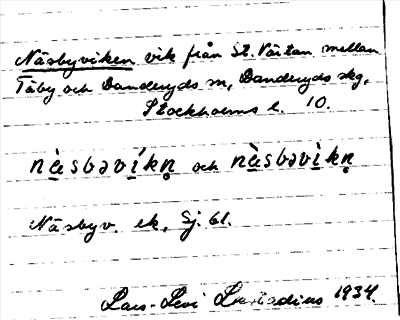 Näsbyviken vik från St. Värtan mellan
Täby och Danderyds sn, Danderyds skg,
Stockholms l. 10.
nä̀sbəvíkn̥ och nä̀sbəvìkn̥
Näsbyv. ek, Sj. 61.
Lars-Levi Læstadius 1934.